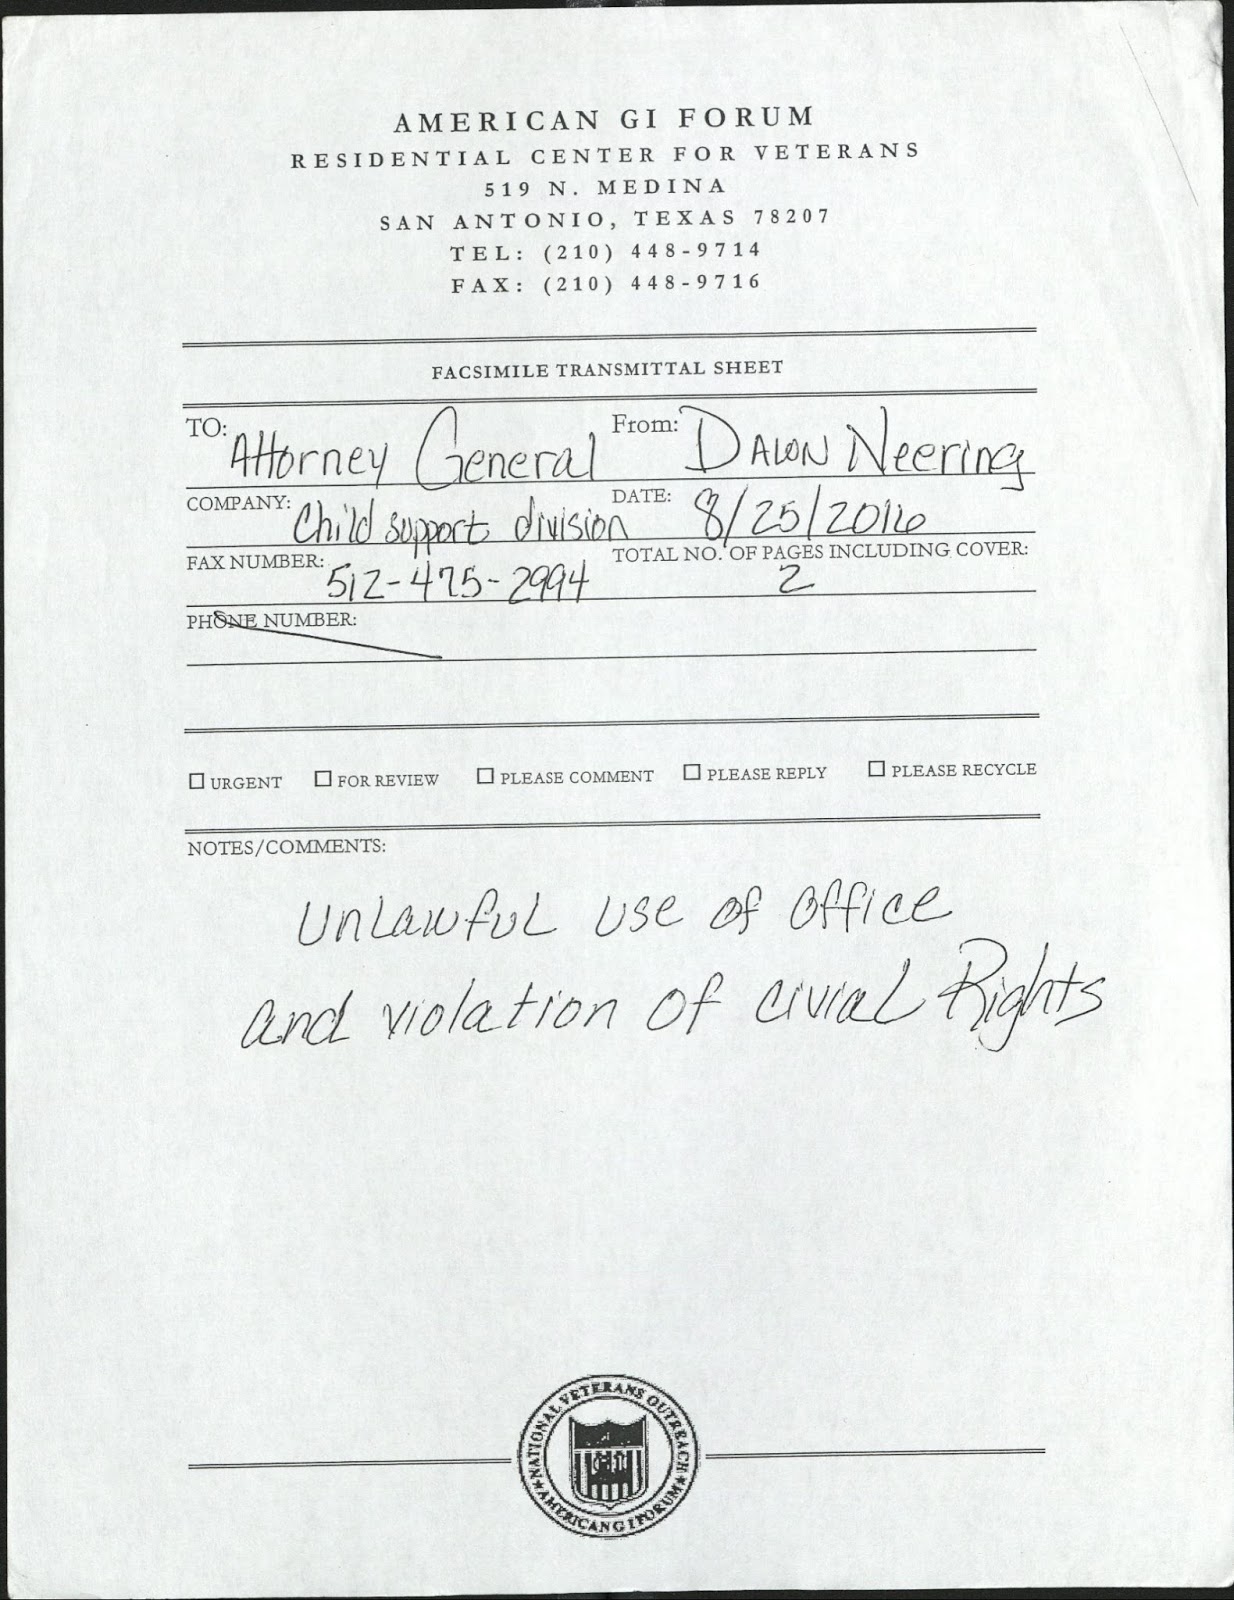 AMERICAN GI FORUM
RESIDENTIAL CENTER FOR VETERANS
519 N. MEDINA
SAN ANTONIO, TEXAS 78207
TEL: (210) 448-9714
FAX: (210) 448-9716
FACSIMILE TRANSMITTAL SHEET
TO: Attorney General From: DALON Neering
COMPANY: Child support division DATE: 8/25/2016
FAX NUMBER: 512-475-2994 TOTAL NO. OF PAGES INCLUDING COVER: 2
PHONE NUMBER:
URGENT FOR REVIEW PLEASE COMMENT PLEASE REPLY PLEASE RECYCLE
NOTES/COMMENTS:
UNLAWFUL USE OF OFFICE
and violation OF civiaL Rights
NATIONAL VETERANS OUTREACH
AMERICAN GI FORUM